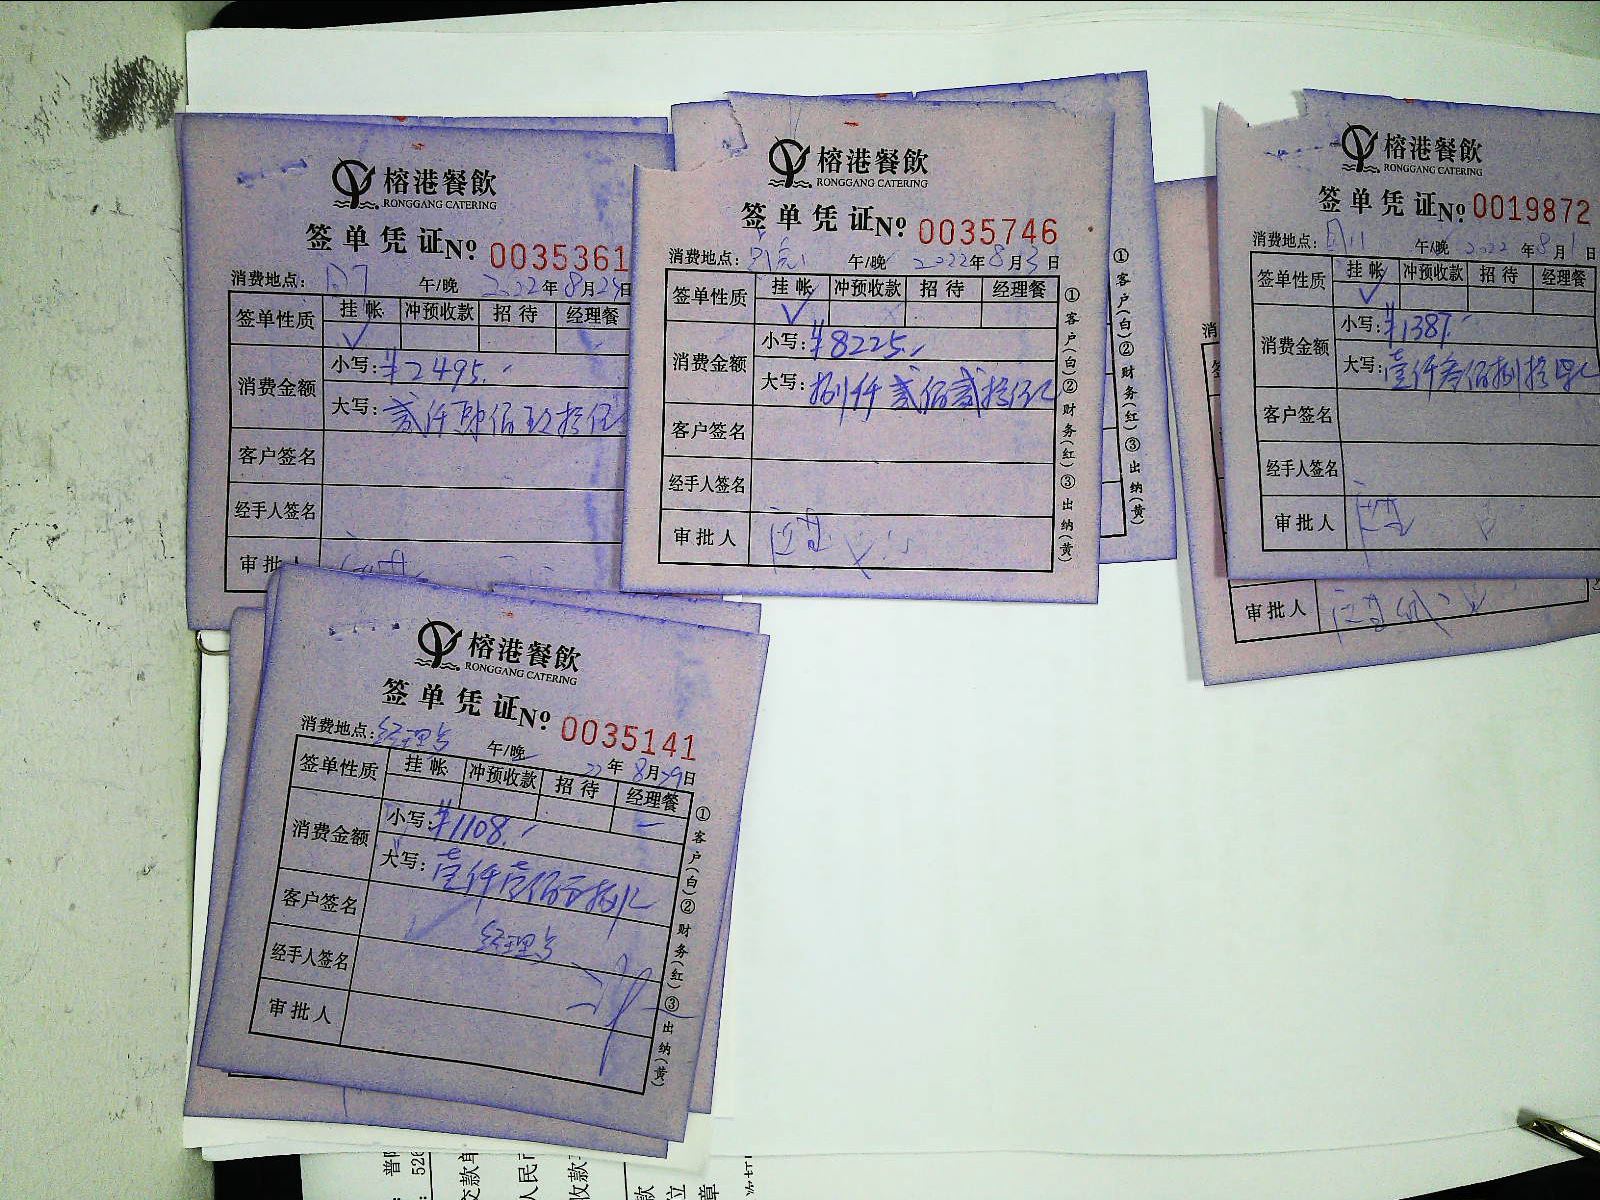 榕港餐飲
RONGGANG CATERING
签单凭证№ 0035361
消费地点: 午/晚 2022年8月25日
签单性质 挂帐 冲预收款 招待 经理餐
消费金额 小写: ¥2495.-
大写: 贰仟肆佰玖拾伍
客户签名
经手人签名
审批
榕港餐飲
RONGGANG CATERING
签单凭证№ 0035746
消费地点: 午/晚 2022年8月3日
签单性质 挂帐 冲预收款 招待 经理餐
消费金额 小写: ¥8225.-
大写: 捌仟贰佰贰拾伍元
客户签名
经手人签名
审批人
①客户(白)②财务(红)③出纳(黄)
①客户(白)②财务(红)③出纳(黄)
榕港餐飲
RONGGANG CATERING
签单凭证№ 0019872
消费地点: 午/晚 2022年8月1日
签单性质 挂帐 冲预收款 招待 经理餐
消费金额 小写: ¥1387.-
大写: 壹仟叁佰捌拾
客户签名
经手人签名
审批人
消
审批人
榕港餐飲
RONGGANG CATERING
签单凭证№ 0035141
消费地点: 经理 午/晚 22年8月29日
签单性质 挂帐 冲预收款 招待 经理餐
消费金额 小写: ¥1108.-
大写: 壹仟壹佰零捌元
客户签名
经理
经手人签名
审批人
①客户(白)②财务(红)③出纳(黄)